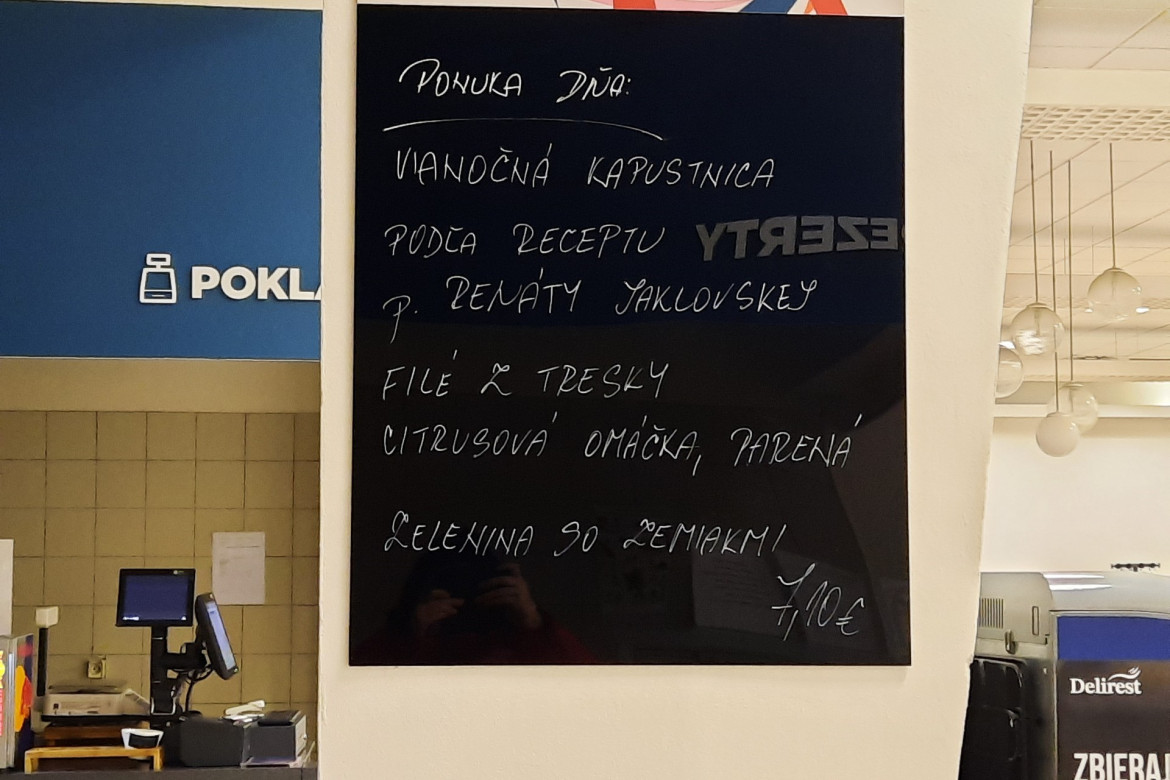 PONUKA DŇA:
VIANOČNÁ KAPUSTNICA
PODĽA RECEPTU
P. RENÁTY JAKLOVSKEJ
FILÉ Z TRESKY
CITRUSOVÁ OMÁČKA, PARENÁ
ZELENINA SO ZEMIAKMI
7,10€
POKLA
EZERTY
Delirest
ZBIERAJ